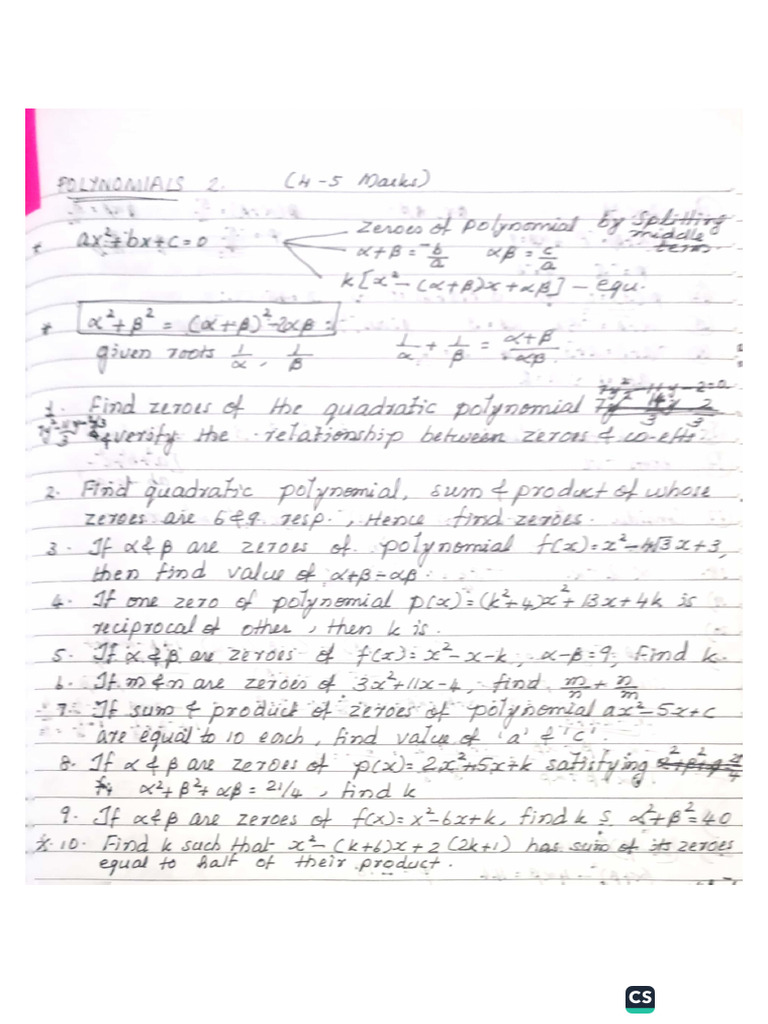 POLYNOMIALS 2. (4-5 Marks)
* ax²+bx+c=0
zeroes of polynomial by splitting middle term.
α+β = -b/a αβ = c/a
k[x²-(α+β)x+αβ] - equ.
* α²+β² = (α+β)²-2αβ
given roots 1/α, 1/β 1/α + 1/β = α+β/αβ
1. Find zeroes of the quadratic polynomial 7y² - 11/3 y - 2/3
& verify the relationship between zeroes & co-eff:
2. Find quadratic polynomial, sum & product of whose
zeroes are 6 & 9 resp., Hence find zeroes.
3. If α & β are zeroes of polynomial f(x)=x²-4√3x+3,
then find value of α+β-αβ.
4. If one zero of polynomial p(x)=(k²+4)x²+13x+4k is
reciprocal of other, then k is.
5. If α & β are zeroes of f(x)=x²-x-k, α-β=9, find k.
6. If m & n are zeroes of 3x²+11x-4, find m/n + n/m
7. If sum & product of zeroes of polynomial ax²-5x+c
are equal to 10 each, find value of 'a' & 'c'.
8. If α & β are zeroes of p(x)=2x²+5x+k satisfying
α²+β²+αβ = 21/4, find k
9. If α & β are zeroes of f(x)=x²-6x+k, find k s α²+β²=40
*10. Find k such that x²-(k+6)x+2(2k+1) has sum of its zeroes
equal to half of their product.
CS